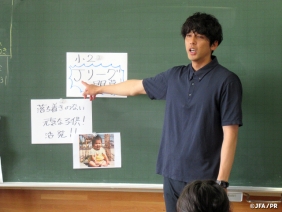 小2
Jリーグ
落ち着きのない
元気な子供!
活発!!
©JFA/PR